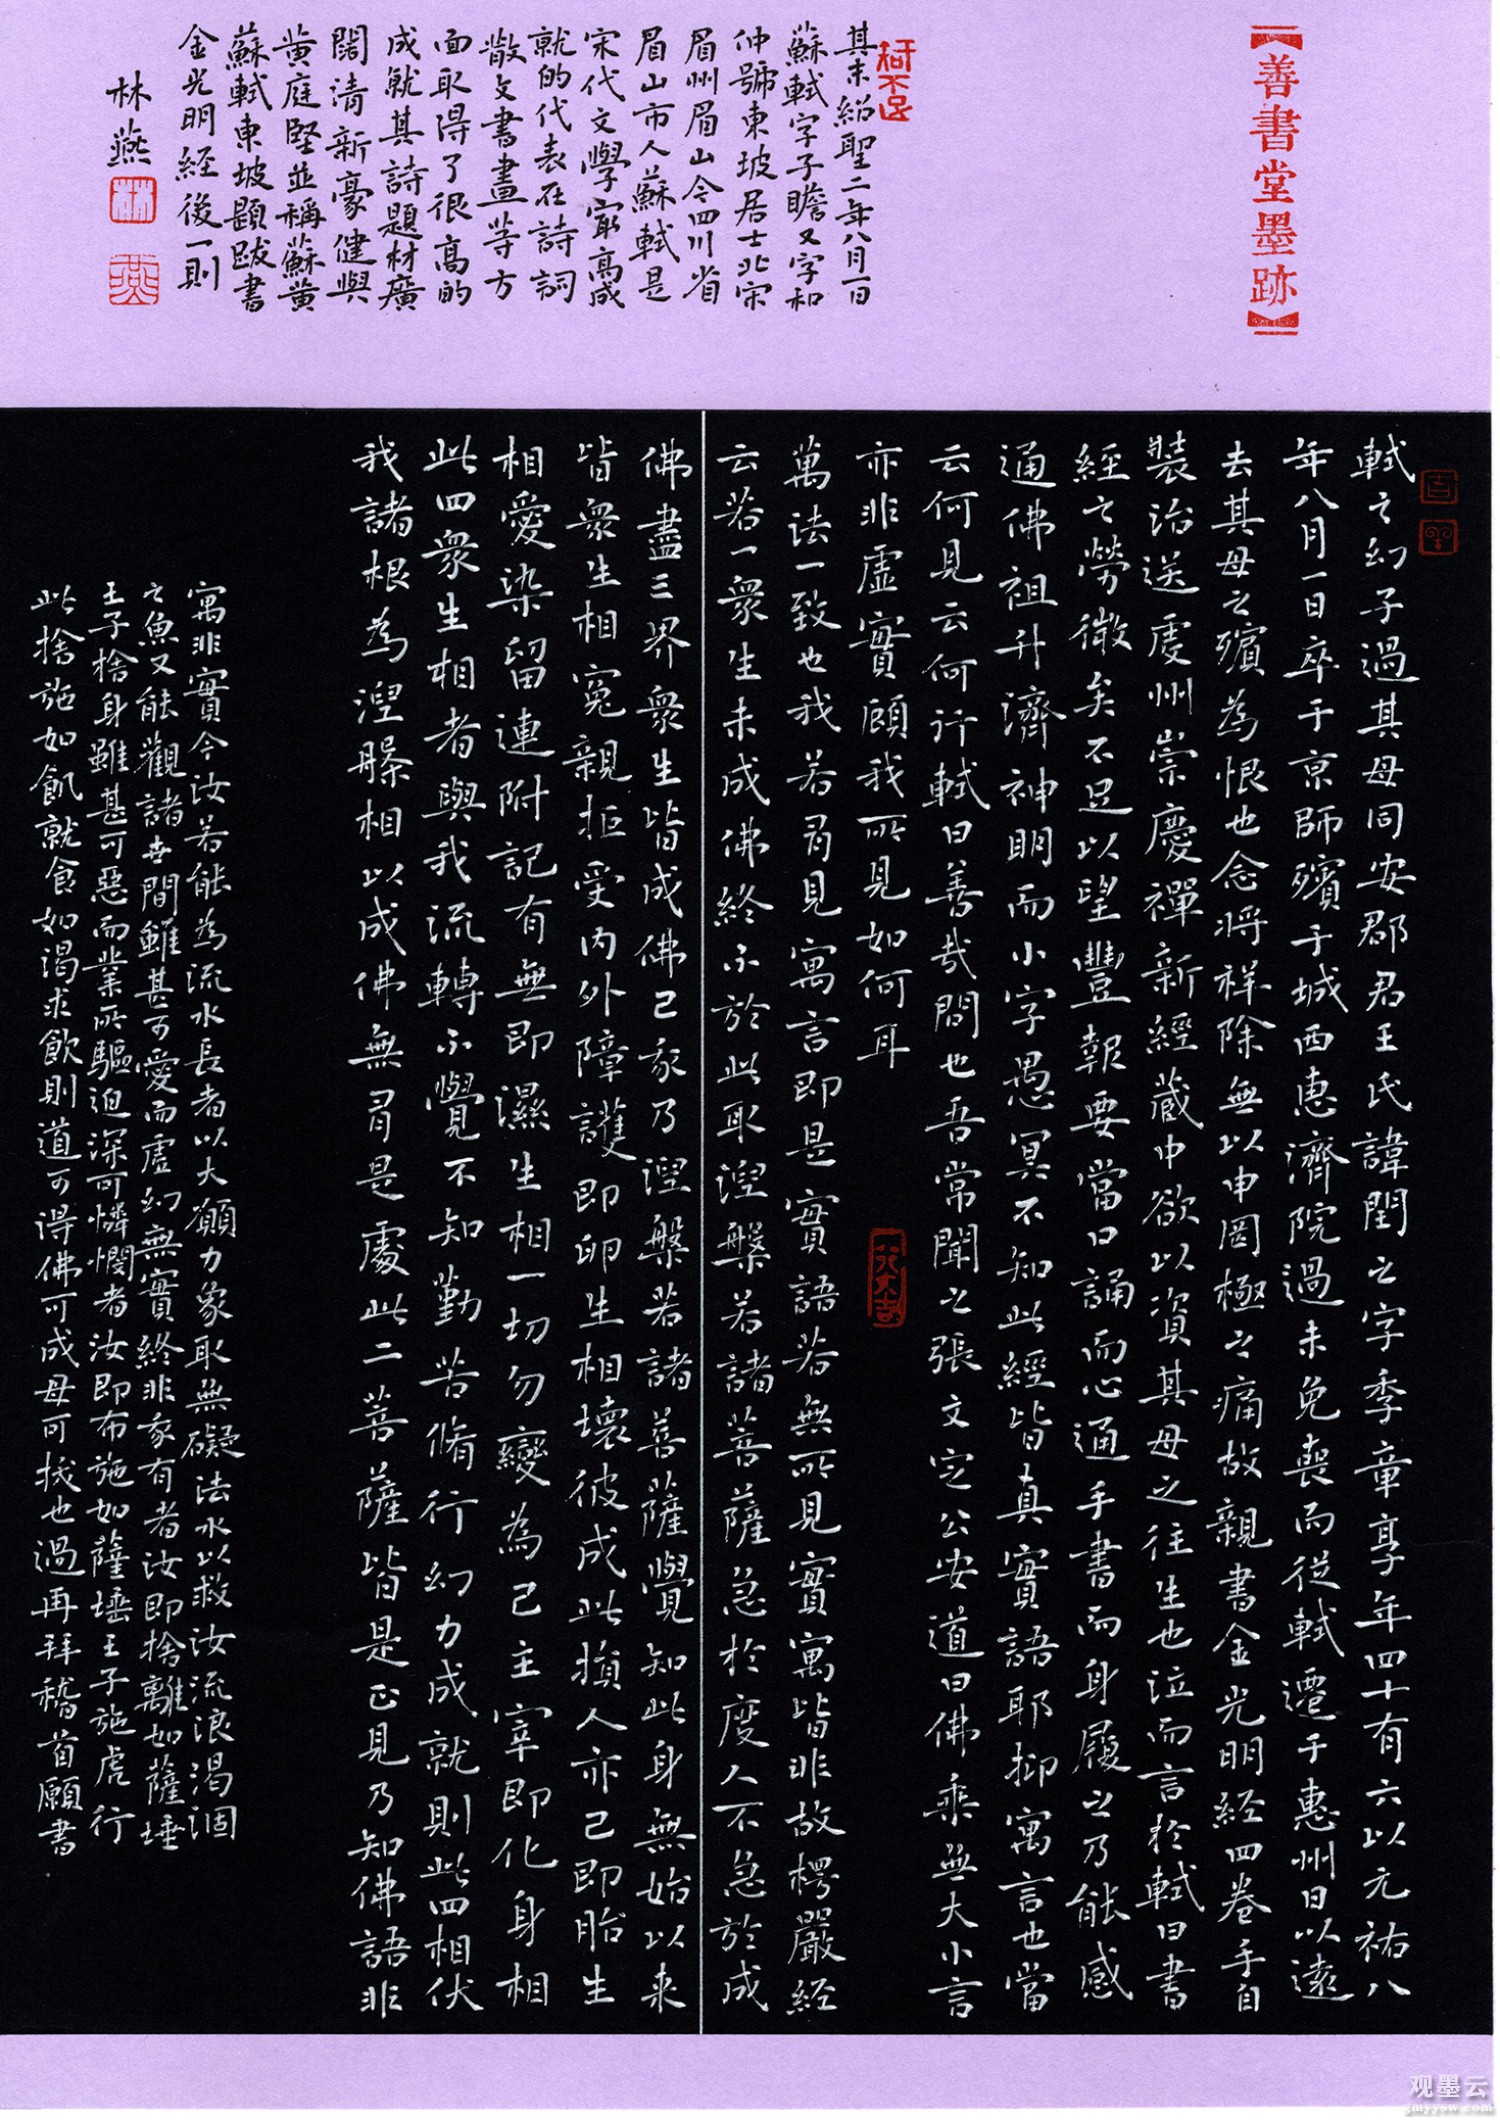 【善書堂墨跡】
其末紹聖二年八月一日
蘇軾字子瞻又字和
仲號東坡居士北宋
眉州眉山今四川省
眉山市人蘇軾是
宋代文學家高成
就的代表在詩詞
散文書畫等方
面取得了很高的
成就其詩題材廣
闊清新豪健與
黄庭堅並稱蘇黄
蘇軾東坡題跋書
金光明経後一則
林燕
林
燕
軾之幻子過其母同安郡君王氏諱閏之字季章享年四十有六以元祐八
年八月一日卒于京師殯于城西惠濟院過未免喪而従軾遷于惠州日以遠
去其母之殯為恨也念将祥除無以申罔極之痛故親書金光明経四卷手自
裝治送虔州崇慶禪新經蔵中欲以資其母之往生也泣而言於軾曰書
經之勞微矣不足以望豐報要當口誦而心通手書而身履之乃能感
通佛祖升濟神明而小子愚冥不知此經皆真實語耶抑寓言也當
云何見云何行軾曰善哉問也吾常聞之張文定公安道曰佛乘無大小言
亦非虛實顧我所見如何耳
萬法一致也我若有見寓言即是實語若無所見實寓皆非故楞嚴経
云若一衆生未成佛終不於此取涅槃若諸菩薩急於度人不急於成
佛盡三界衆生皆成佛已我乃涅槃若諸菩薩覺知此身無始以来
皆衆生相寃親拒受内外障護即卵生相壊彼成此損人亦己即胎生
相愛染留連附記有無即濕生相一切勿變為己主宰即化身相
此四衆生相者與我流轉不覺不知勤苦脩行幻力成就則此四相伏
我諸根為涅槃相以成佛無有是處此二菩薩皆是正見乃知佛語非
寓非實今汝若能為流水長者以大願力象取無礙法水以救汝流浪渴涸
之魚又能觀諸世間雖甚可愛而虛幻無實終非我有者汝即捨離如薩埵
王子捨身雖甚可惡而業所驅迫深可憐憫者汝即布施如薩埵王子施虎行
此捨施如飢就食如渴求飲則道可得佛可成母可拔也過再拜稽首願書
一行大吉
观墨云
gmyysw.com